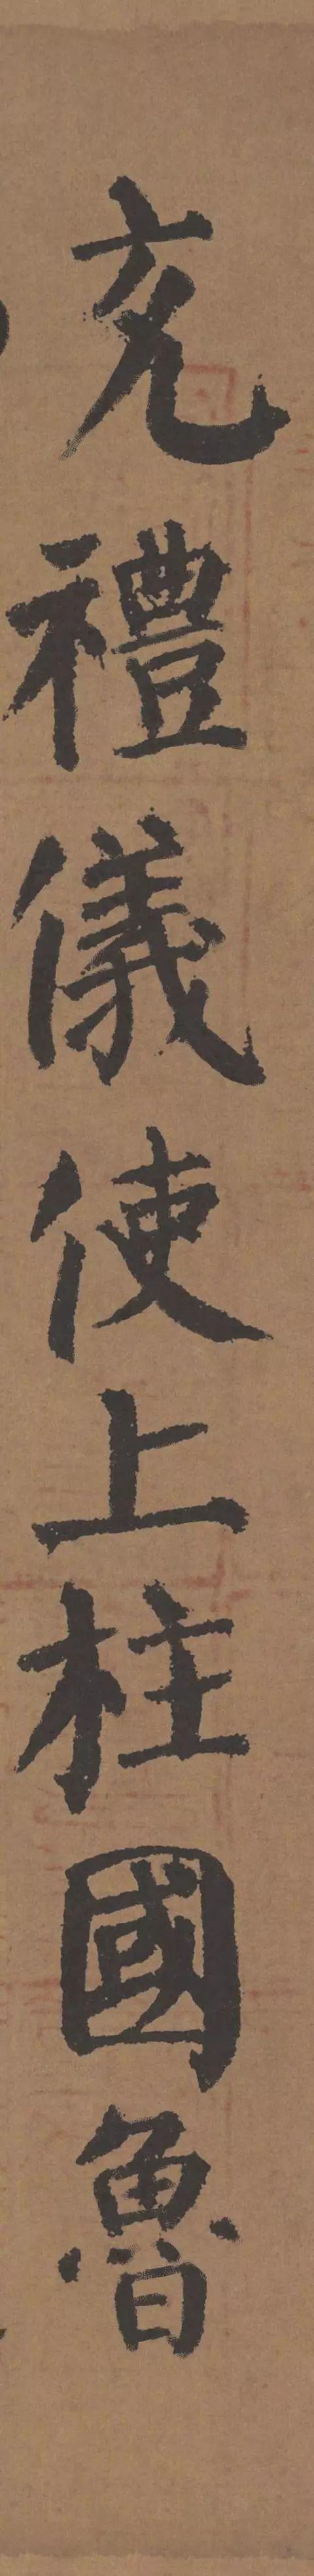 充禮儀使上柱國魯